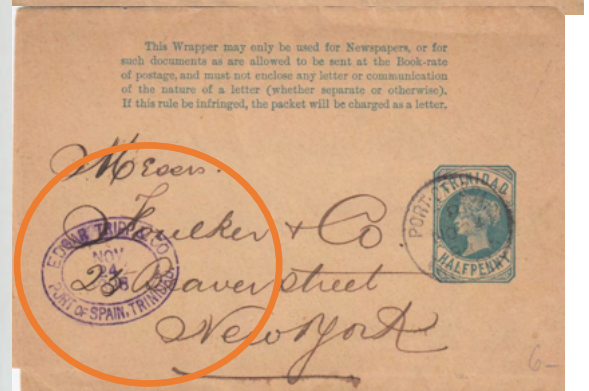 This Wrapper may only be used for Newspapers, or for
such documents as are allowed to be sent at the Book-rate
of postage, and must not enclose any letter or communication
of the nature of a letter (whether separate or otherwise).
If this rule be infringed, the packet will be charged as a letter.
Messrs.
& Co.
23 Beaver Street
New York
EDGAR TRIPP & CO
NOV
PORT OF SPAIN, TRINIDAD
TRINIDAD
HALFPENNY
PORT
6-